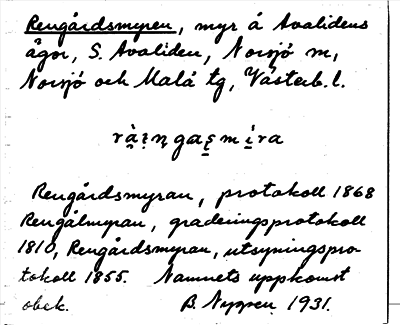 Rengårdsmyren, myr å Avalidens
ägor, S. Avaliden, Norsjö sn,
Norsjö och Malå tg, Västerb. l.
Rengårdsmyran, protokoll 1868
Rengålmyran, graderingsprotokoll
1810, Rengårdsmyran, utsyningspro-
tokoll 1855. Namnets uppkomst
obek. B. Nyreen 1931.